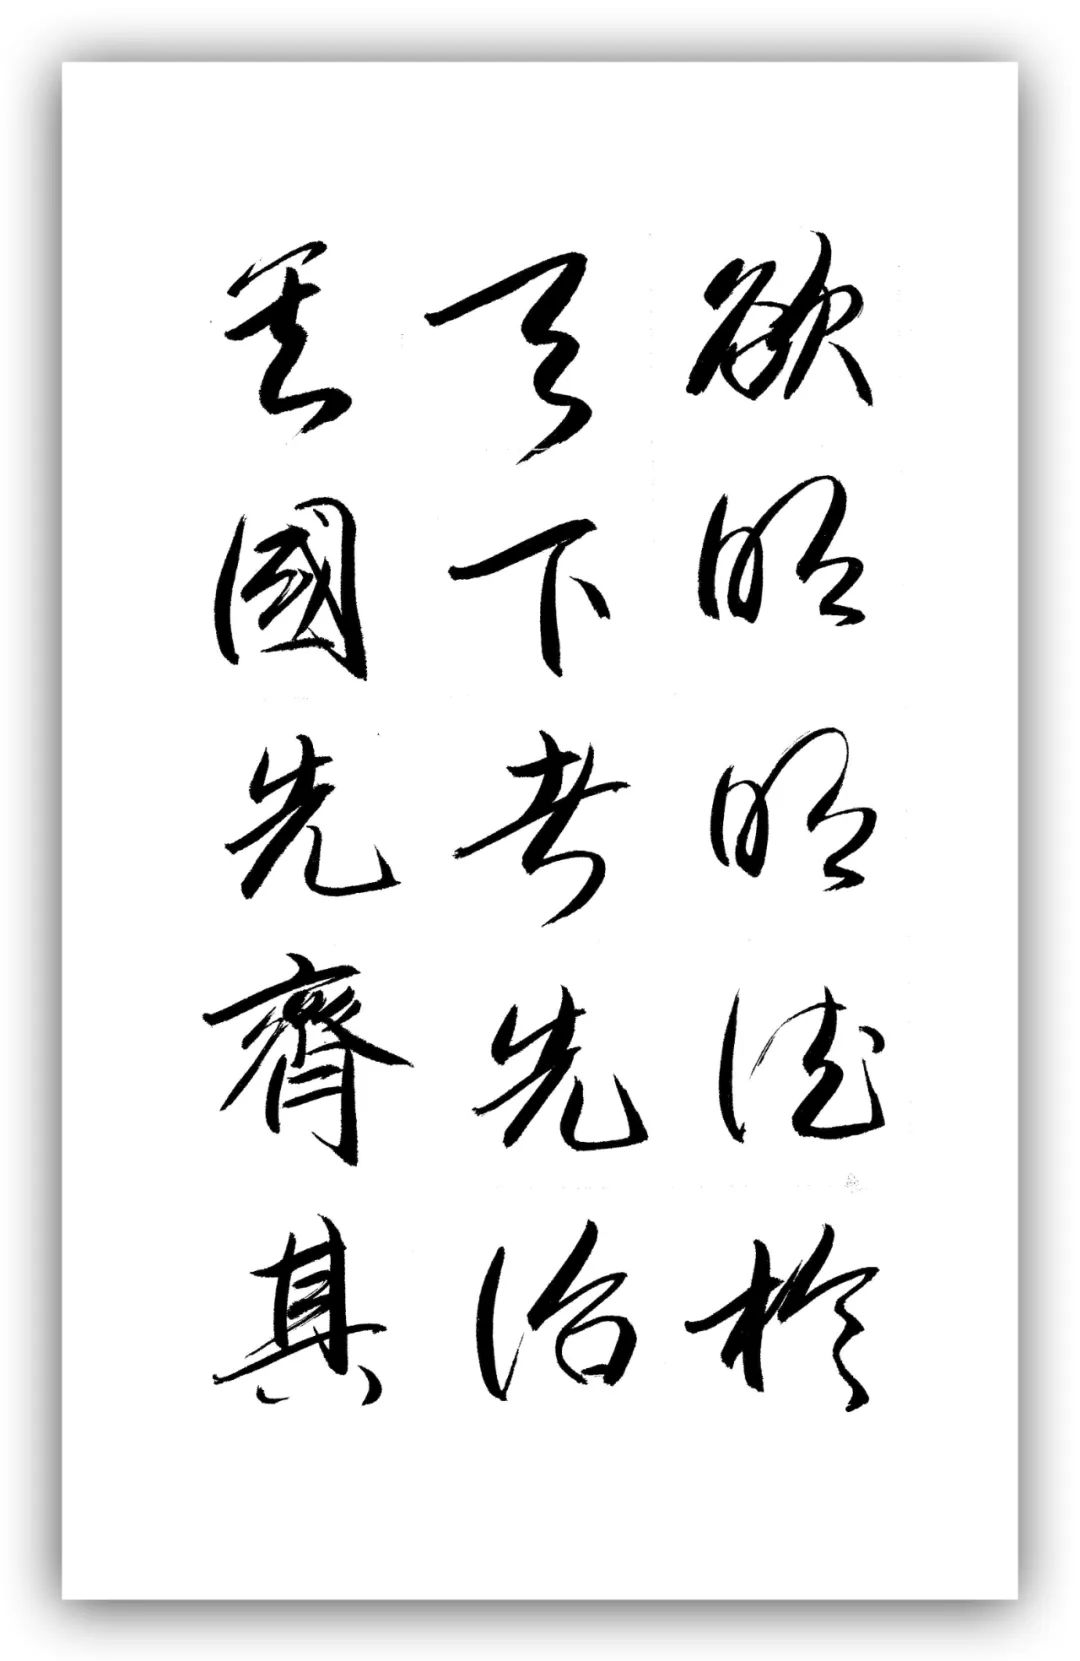 欲明明德於
天下者先治
其國先齊其